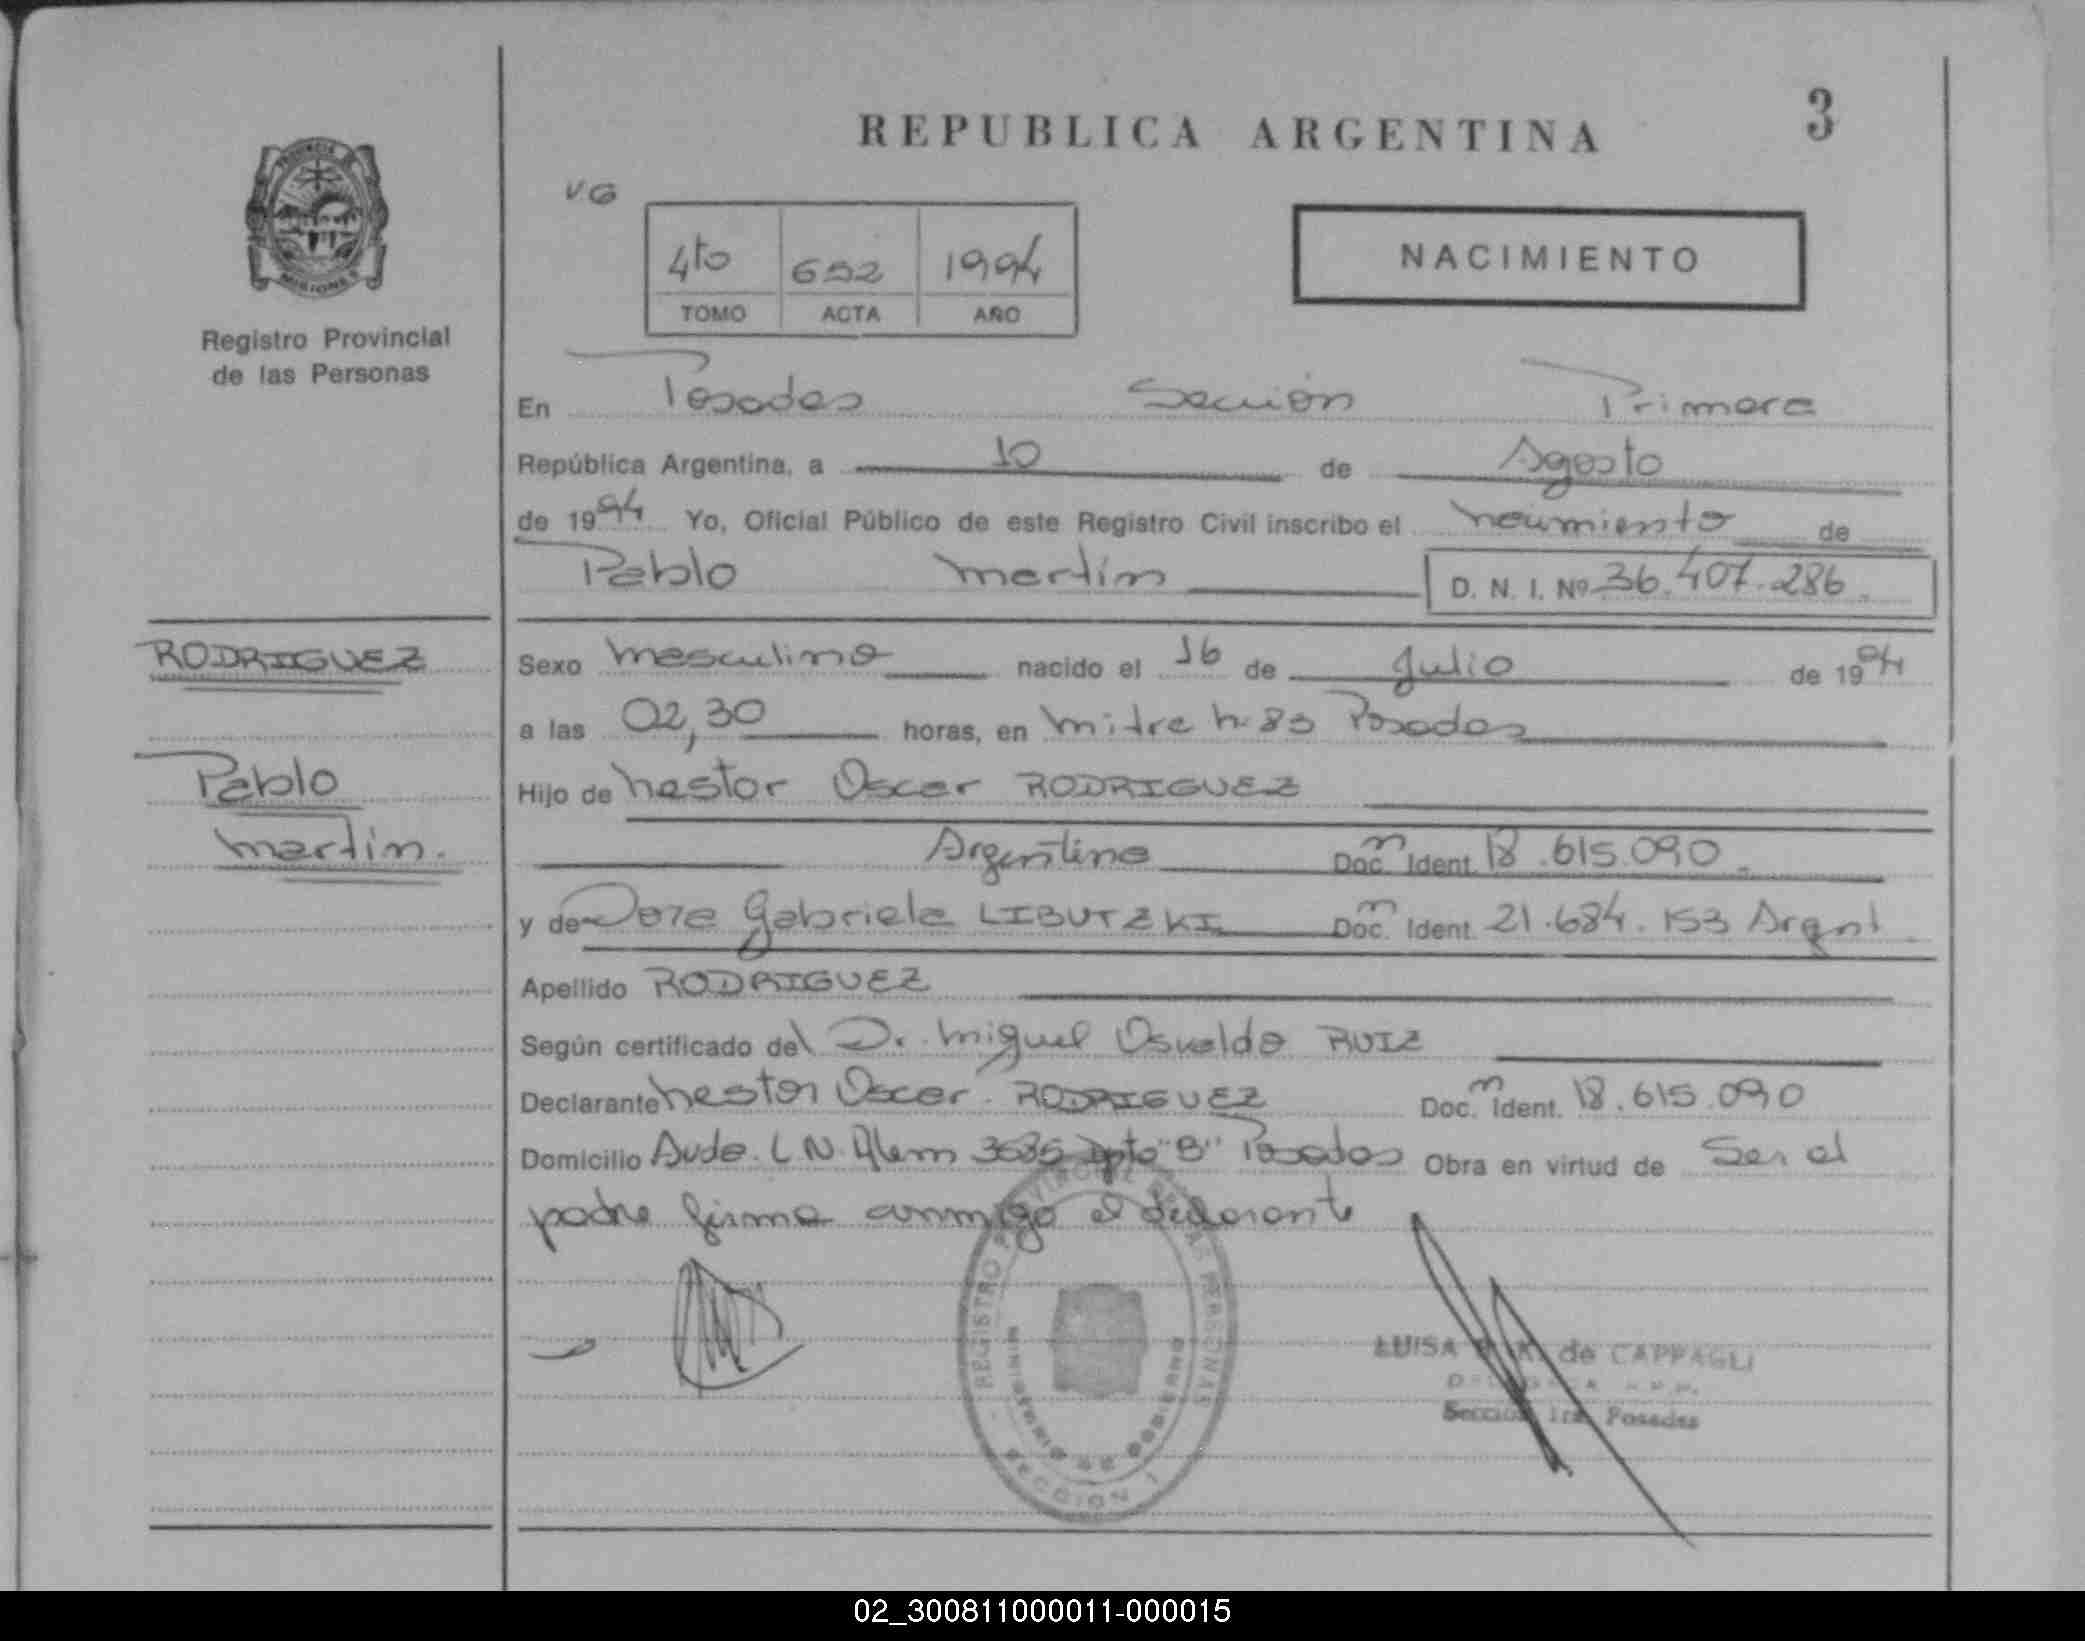 REPUBLICA ARGENTINA
3
PROVINCIA DE MISIONES
Registro Provincial
de las Personas
VG
4to 692 1994
TOMO ACTA AÑO
NACIMIENTO
En Posadas Sección Primera
República Argentina, a 10 de Agosto
de 1994 Yo, Oficial Público de este Registro Civil inscribo el nacimiento de
Pablo Martín D. N. I. Nº 36.407.286.
RODRIGUEZ
Pablo
Martín.
Sexo masculino nacido el 16 de Julio de 1994
a las 02,30 horas, en Mitre n. 83 Posadas
Hijo de Nestor Oscar RODRIGUEZ
Argentino Doc. n Ident. 18.615.090.
y de Dora Gabriela LIBUTZKI Doc. n Ident. 21.684.153 Argnt.
Apellido RODRIGUEZ
Según certificado del Dr. Miguel Osvaldo RUIZ
Declarante Nestor Oscar RODRIGUEZ Doc. n Ident. 18.615.090
Domicilio Avda. L.N. Alem 3685 Dpto "B" Posadas Obra en virtud de Ser el
padre firma conmigo el declarante
REGISTRO PROVINCIAL DE LAS PERSONAS
MINISTERIO DE GOBIERNO
SECCION 1
LUISA de CAPPAGLI
Sección 1ra. Posadas
02_300811000011-000015